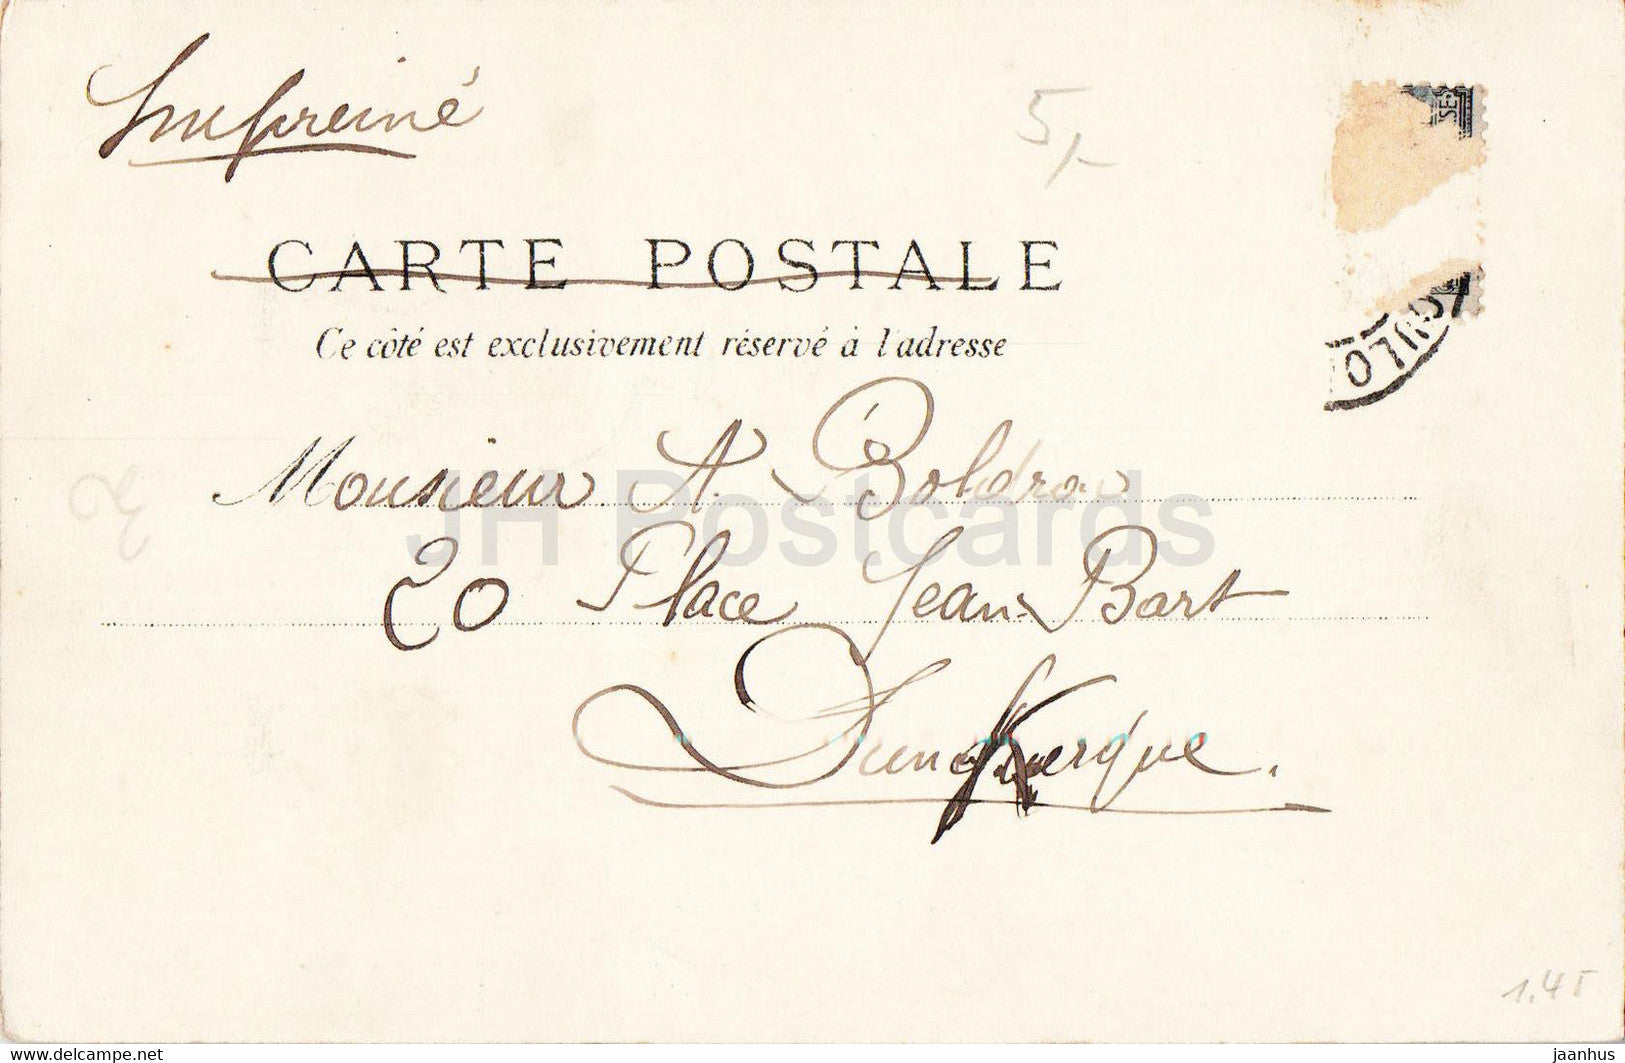 Impreimé
5,-
CARTE POSTALE
Ce côté est exclusivement réservé à l'adresse
Monsieur A. Boldrov
20 Place Jean-Bart
Dunckerque.
JH Postcards
1.45
www.delcampe.net
jaanhus